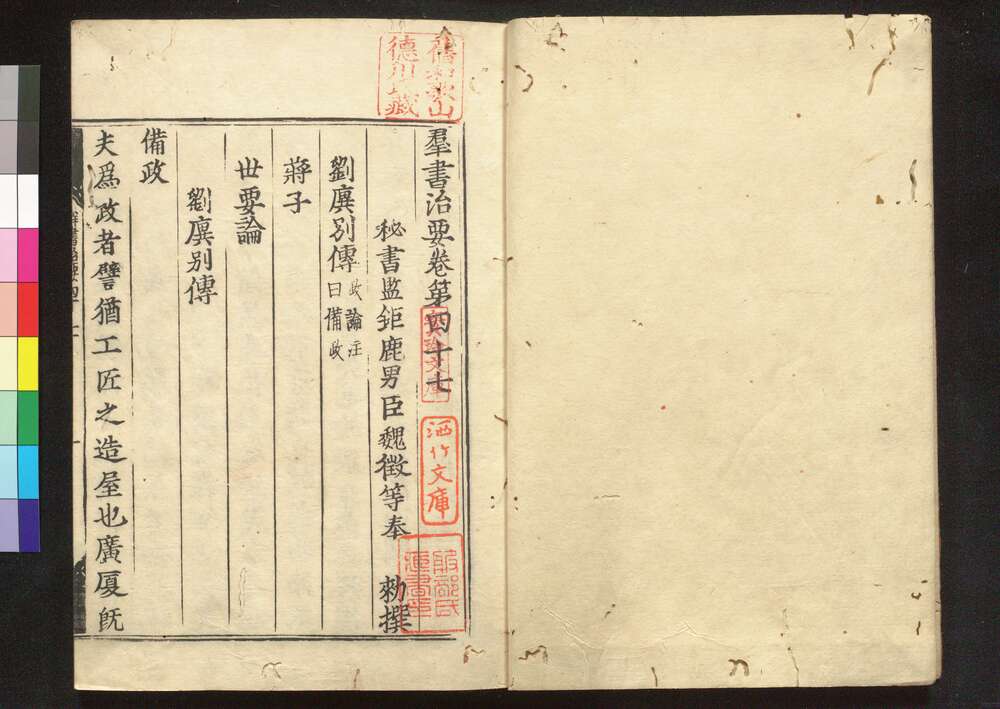 羣書治要卷第四十七
秘書監鉅鹿男臣魏徵等奉 勑撰
劉廙別傳 政論注曰備政
蔣子
世要論
劉廙別傳
備政
夫爲政者譬猶工匠之造屋也廣厦旣
德川氏藏
洒竹文庫
服部氏